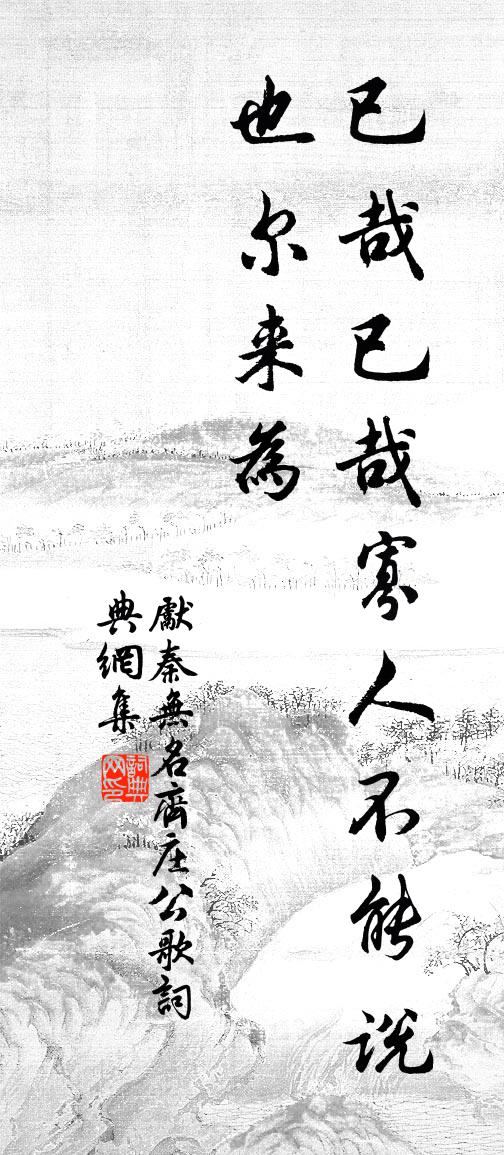 已哉已哉寡人不能说
也尔来為
獻秦無名齊庄公歌詞
典網集
詞典
网印